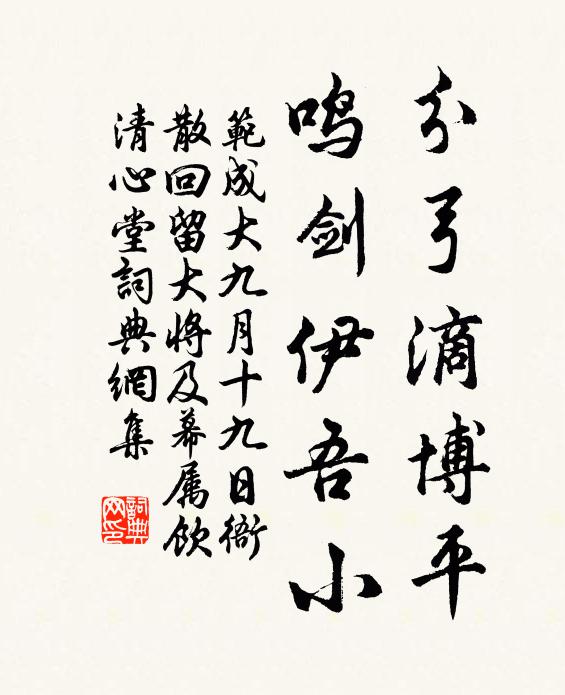 分弓滴博平
鸣剑伊吾小
範成大九月十九日衙
散回留大将及幕属飲
清心堂詞典網集
詞典
网印